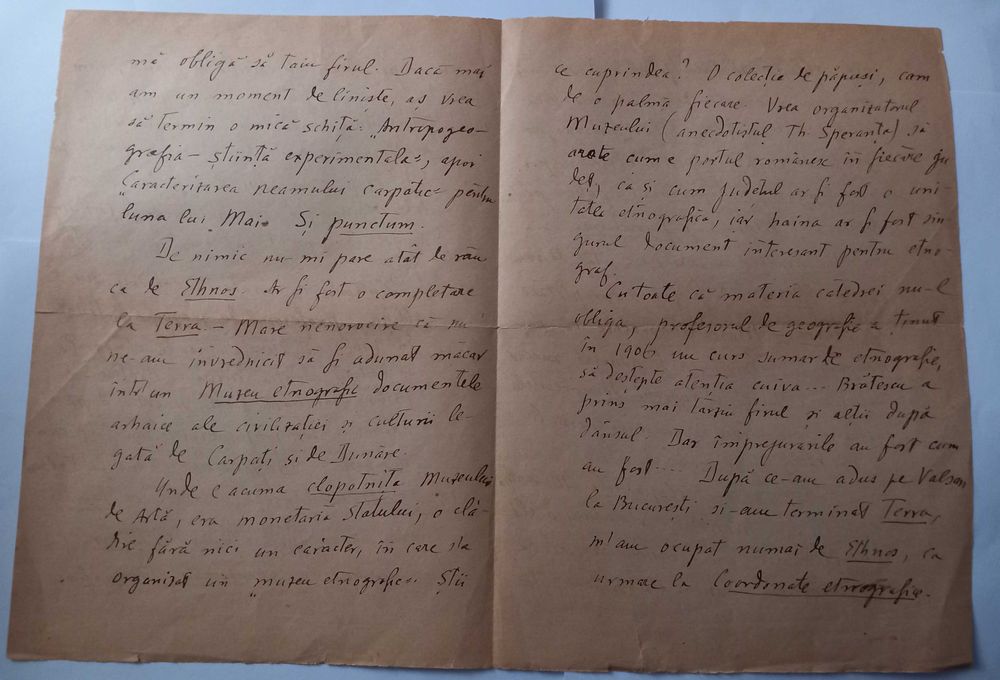 mă obligă să taiu firul. Dacă mai
am un moment de liniște, aș vrea
să termin o mică schiță: „Antropogeo-
grafia – știință experimentală", apoi
„Caracterizarea neamului carpatic" pentru
luna lui Mai. Și punctum.
De nimic nu-mi pare atât de rău
ca de Ethnos. Ar fi fost o completare
la Terra. – Mare nenorocire că nu
ne-am învrednicit să fi adunat măcar
într'un Muzeu etnografic documentele
arhaice ale civilizației și culturii le-
gată de Carpați și de Dunăre.
Unde e acuma clopotnița Muzeului
de Artă, era monetăria Statului, o clă-
dire fără nici un caracter, în care s'a
organizat un „muzeu etnografic". Știi
ce cuprindea? O colecție de păpuși, cam
de o palmă fiecare. Vrea organizatorul
Muzeului (anecdotistul Th. Speranța) să
arate cum e portul românesc în fiecare ju
deț, ca și cum județul ar fi fost o uni-
tate etnografică, iar haina ar fi fost sin-
gurul document interesant pentru etno-
graf.
Cu toate că materia catedrei nu-l
obliga, profesorul de geografie a ținut
în 1906 un curs sumar de etnografie,
să deștepte atenția cuiva... Brătescu a
prins mai târziu firul și alții după
dânsul. Dar împrejurările au fost cum
au fost.... După ce-am adus pe Valsan
la București și-am terminat Terra,
m'am ocupat numai de Ethnos, ca
urmare la Coordonate etnografice.